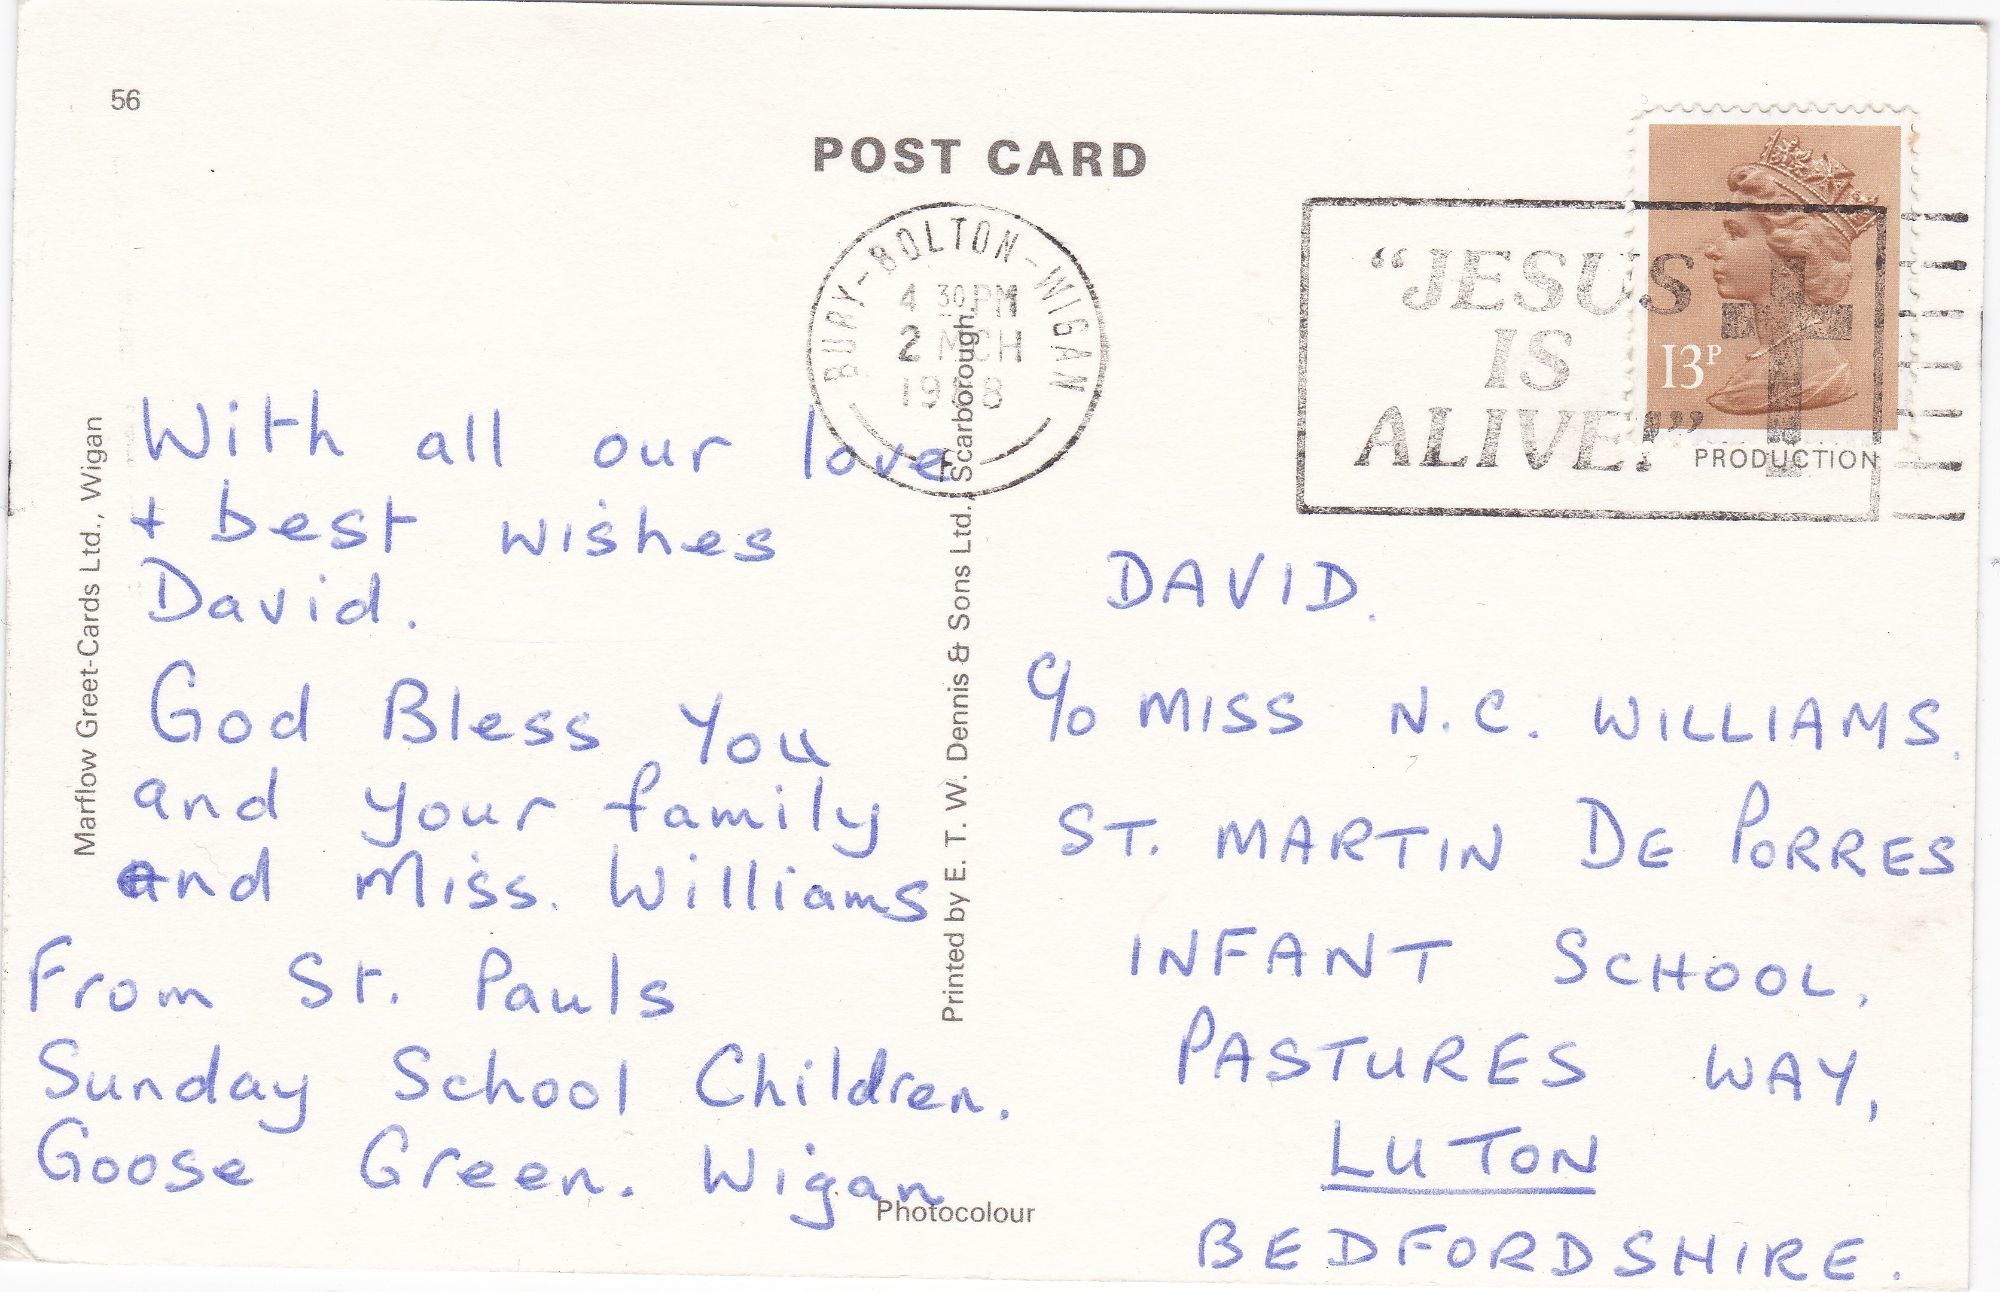 56
POST CARD
BURY-BOLTON-WIGAN
4 30 PM
2 MCH
1988
"JESUS
IS
ALIVE!"
13P
PRODUCTION
With all our love
+ best wishes
David.
God Bless You
and your family
and Miss. Williams
From St. Pauls
Sunday School Children.
Goose Green. Wigan
Marflow Greet-Cards Ltd., Wigan
Printed by E. T. W. Dennis & Sons Ltd., Scarborough.
Photocolour
DAVID.
c/o MISS N.C. WILLIAMS.
ST. MARTIN DE PORRES
INFANT SCHOOL,
PASTURES WAY,
LUTON
BEDFORDSHIRE.